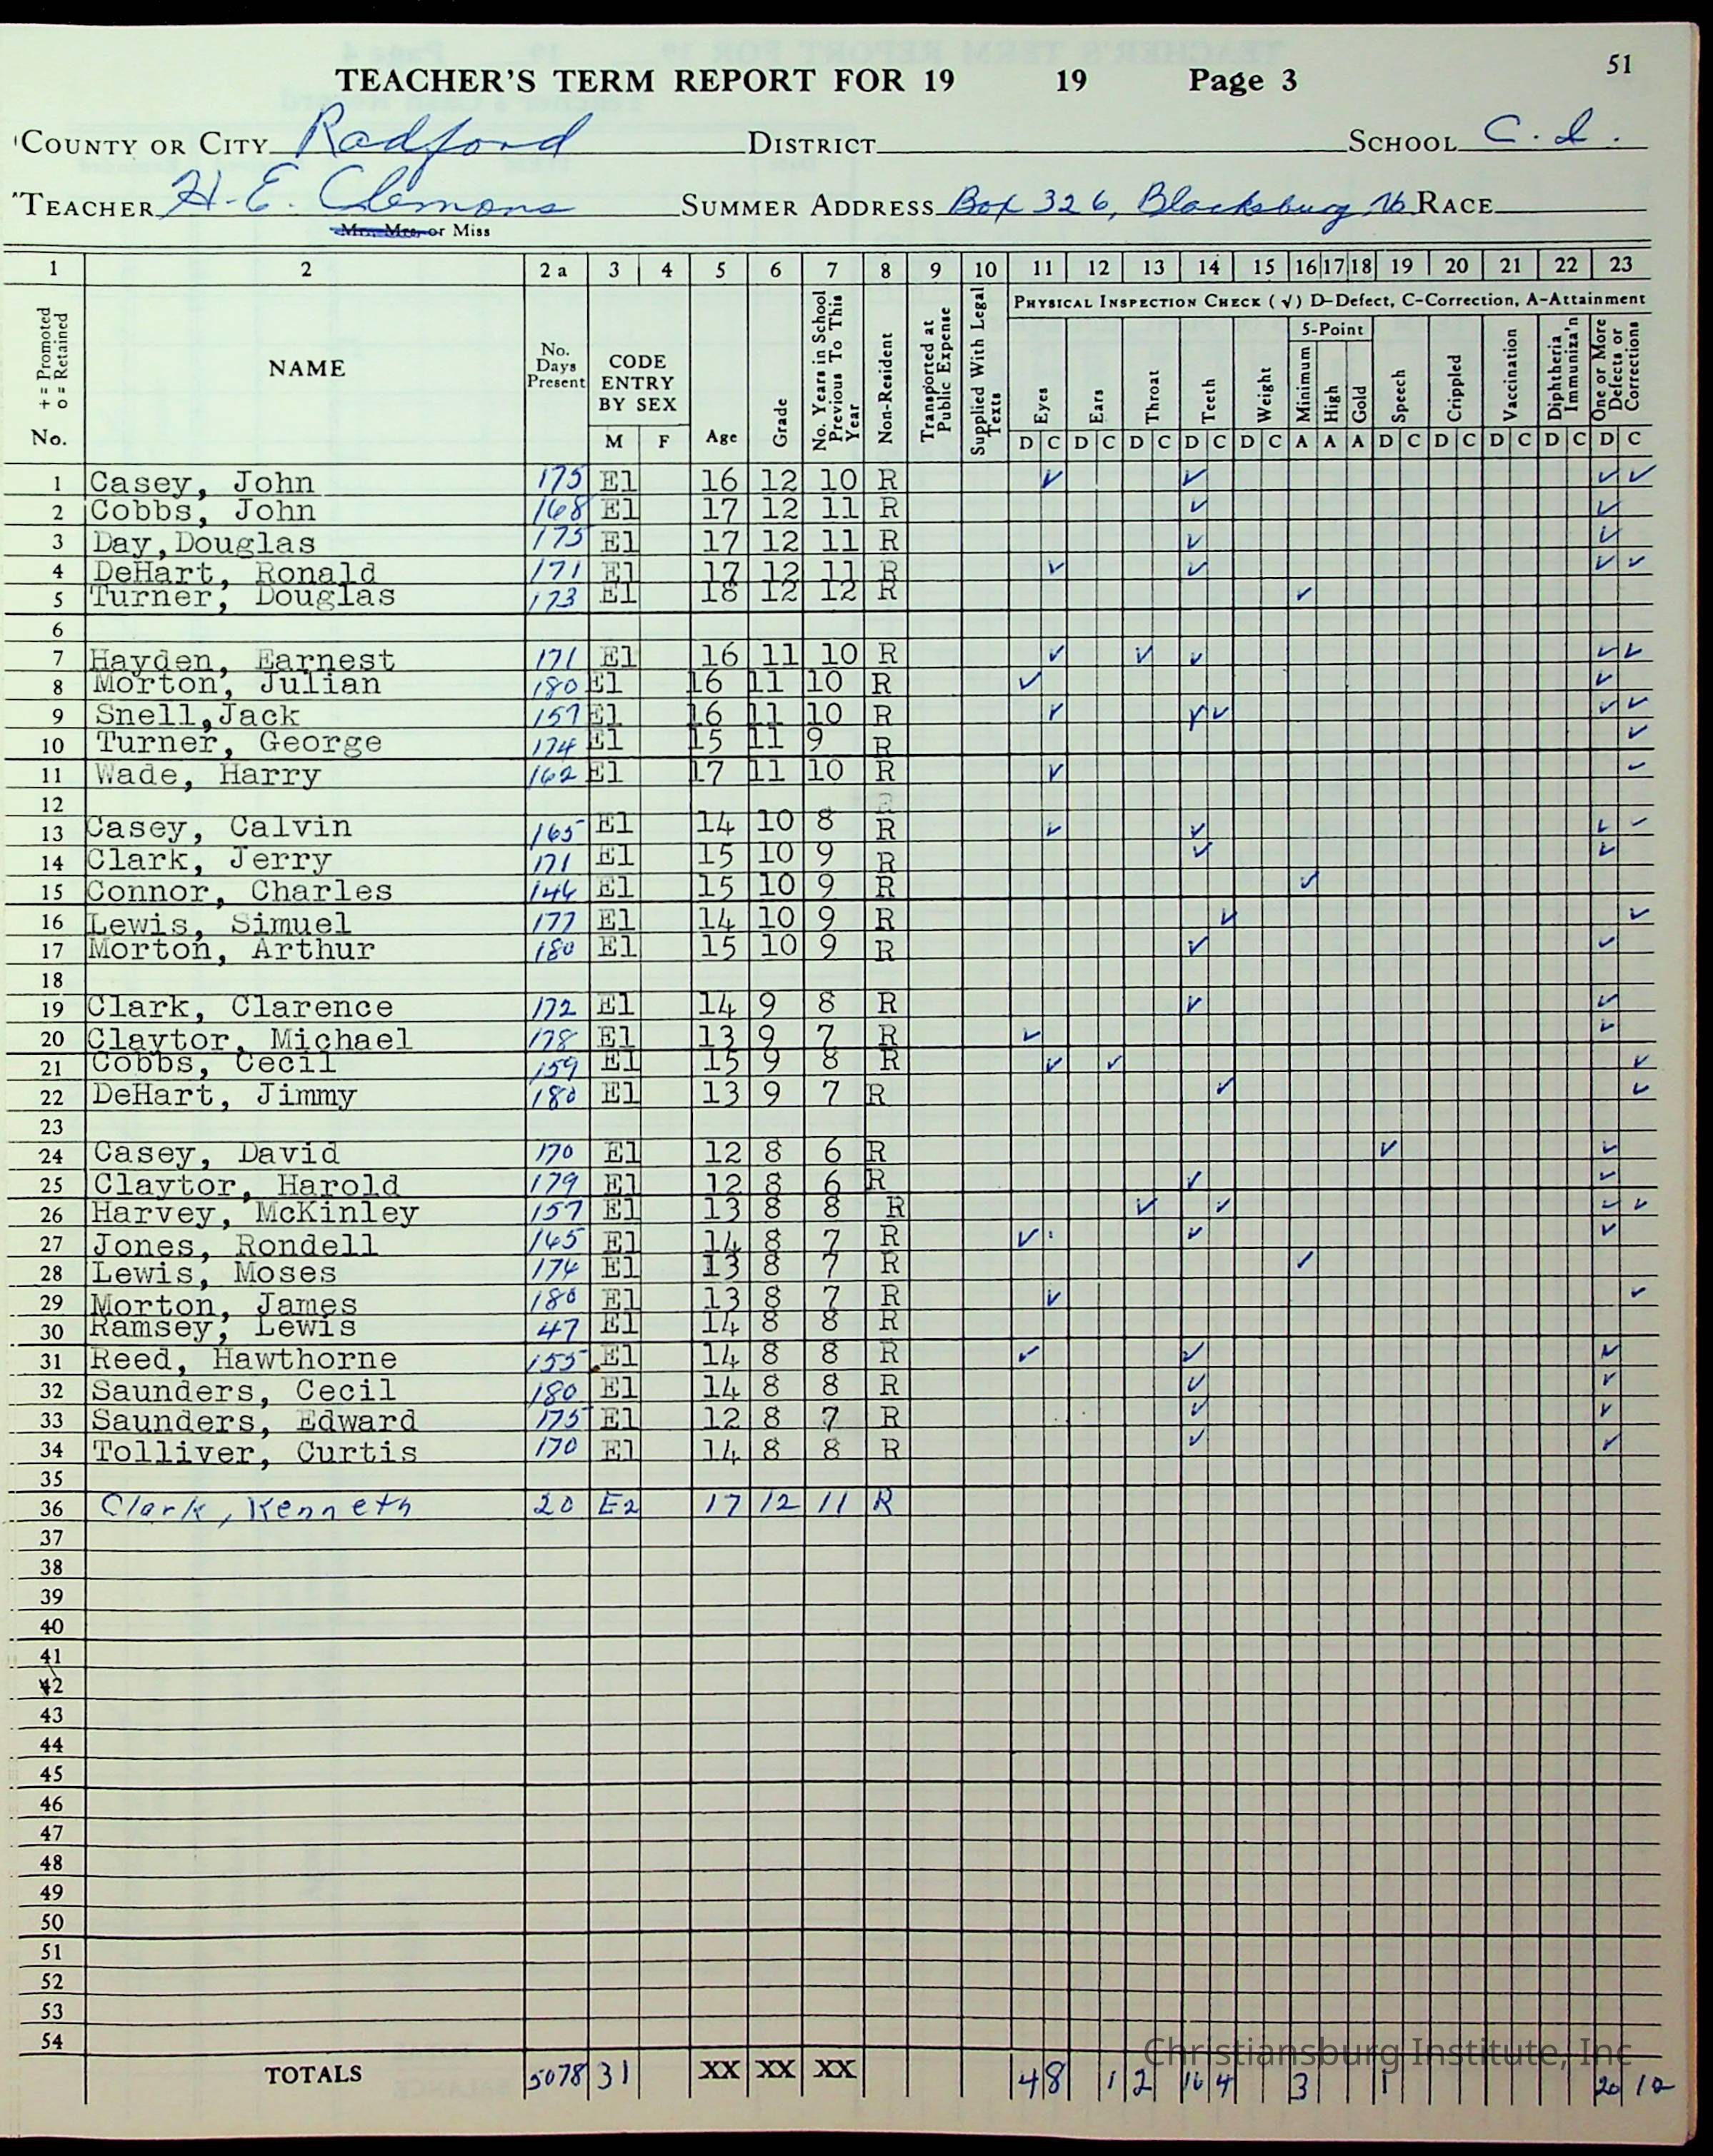 51
TEACHER'S TERM REPORT FOR 19 19 Page 3
COUNTY OR CITY Radford DISTRICT SCHOOL C. I.
TEACHER H. E. Clemons SUMMER ADDRESS Box 326, Blacksburg Va RACE
Mr., Mrs. or Miss
1 2 2 a 3 4 5 6 7 8 9 10 11 12 13 14 15 16 17 18 19 20 21 22 23
+ = Promoted o = Retained No. NAME No. Days Present CODE ENTRY BY SEX M F Age Grade No. Years in School Previous To This Year Non-Resident Transported at Public Expense Supplied With Legal Texts
PHYSICAL INSPECTION CHECK (√) D-Defect, C-Correction, A-Attainment
Eyes Ears Throat Teeth Weight 5-Point Minimum High Gold Speech Crippled Vaccination Diphtheria Immuniza'n One or More Defects or Corrections
D C D C D C D C D C A A A D C D C D C D C D C
1 Casey, John 175 El 16 12 10 R ✓ ✓ ✓ ✓
2 Cobbs, John 168 El 17 12 11 R ✓ ✓
3 Day,Douglas 175 El 17 12 11 R ✓ ✓
4 DeHart, Ronald 171 El 17 12 11 R ✓ ✓ ✓ ✓
5 Turner, Douglas 173 El 18 12 12 R ✓
6
7 Hayden, Earnest 171 El 16 11 10 R ✓ ✓ ✓ ✓ ✓
8 Morton, Julian 180 El 16 11 10 R ✓ ✓
9 Snell,Jack 157 El 16 11 10 R ✓ ✓ ✓ ✓ ✓
10 Turner, George 174 El 15 11 9 R ✓
11 Wade, Harry 162 El 17 11 10 R ✓ ✓
12
13 Casey, Calvin 165 El 14 10 8 R ✓ ✓ ✓ ✓
14 Clark, Jerry 171 El 15 10 9 R ✓ ✓
15 Connor, Charles 146 El 15 10 9 R ✓
16 Lewis, Simuel 177 El 14 10 9 R ✓ ✓
17 Morton, Arthur 180 El 15 10 9 R ✓ ✓
18
19 Clark, Clarence 172 El 14 9 8 R ✓ ✓
20 Claytor, Michael 178 El 13 9 7 R ✓ ✓
21 Cobbs, Cecil 159 El 15 9 8 R ✓ ✓ ✓
22 DeHart, Jimmy 180 El 13 9 7 R ✓ ✓
23
24 Casey, David 170 El 12 8 6 R ✓ ✓
25 Claytor, Harold 179 El 12 8 6 R ✓ ✓
26 Harvey, McKinley 157 El 13 8 8 R ✓ ✓ ✓ ✓
27 Jones, Rondell 165 El 14 8 7 R ✓ ✓ ✓
28 Lewis, Moses 174 El 13 8 7 R ✓
29 Morton, James 180 El 13 8 7 R ✓ ✓
30 Ramsey, Lewis 47 El 14 8 8 R
31 Reed, Hawthorne 155 El 14 8 8 R ✓ ✓ ✓
32 Saunders, Cecil 180 El 14 8 8 R ✓ ✓
33 Saunders, Edward 175 El 12 8 7 R ✓ ✓
34 Tolliver, Curtis 170 El 14 8 8 R ✓ ✓
35
36 Clark, Kenneth 20 E2 17 12 11 R
37
38
39
40
41
42
43
44
45
46
47
48
49
50
51
52
53
54
Christiansburg Institute, Inc
TOTALS 5078 31 XX XX XX 4 8 1 2 16 4 3 1 20 12